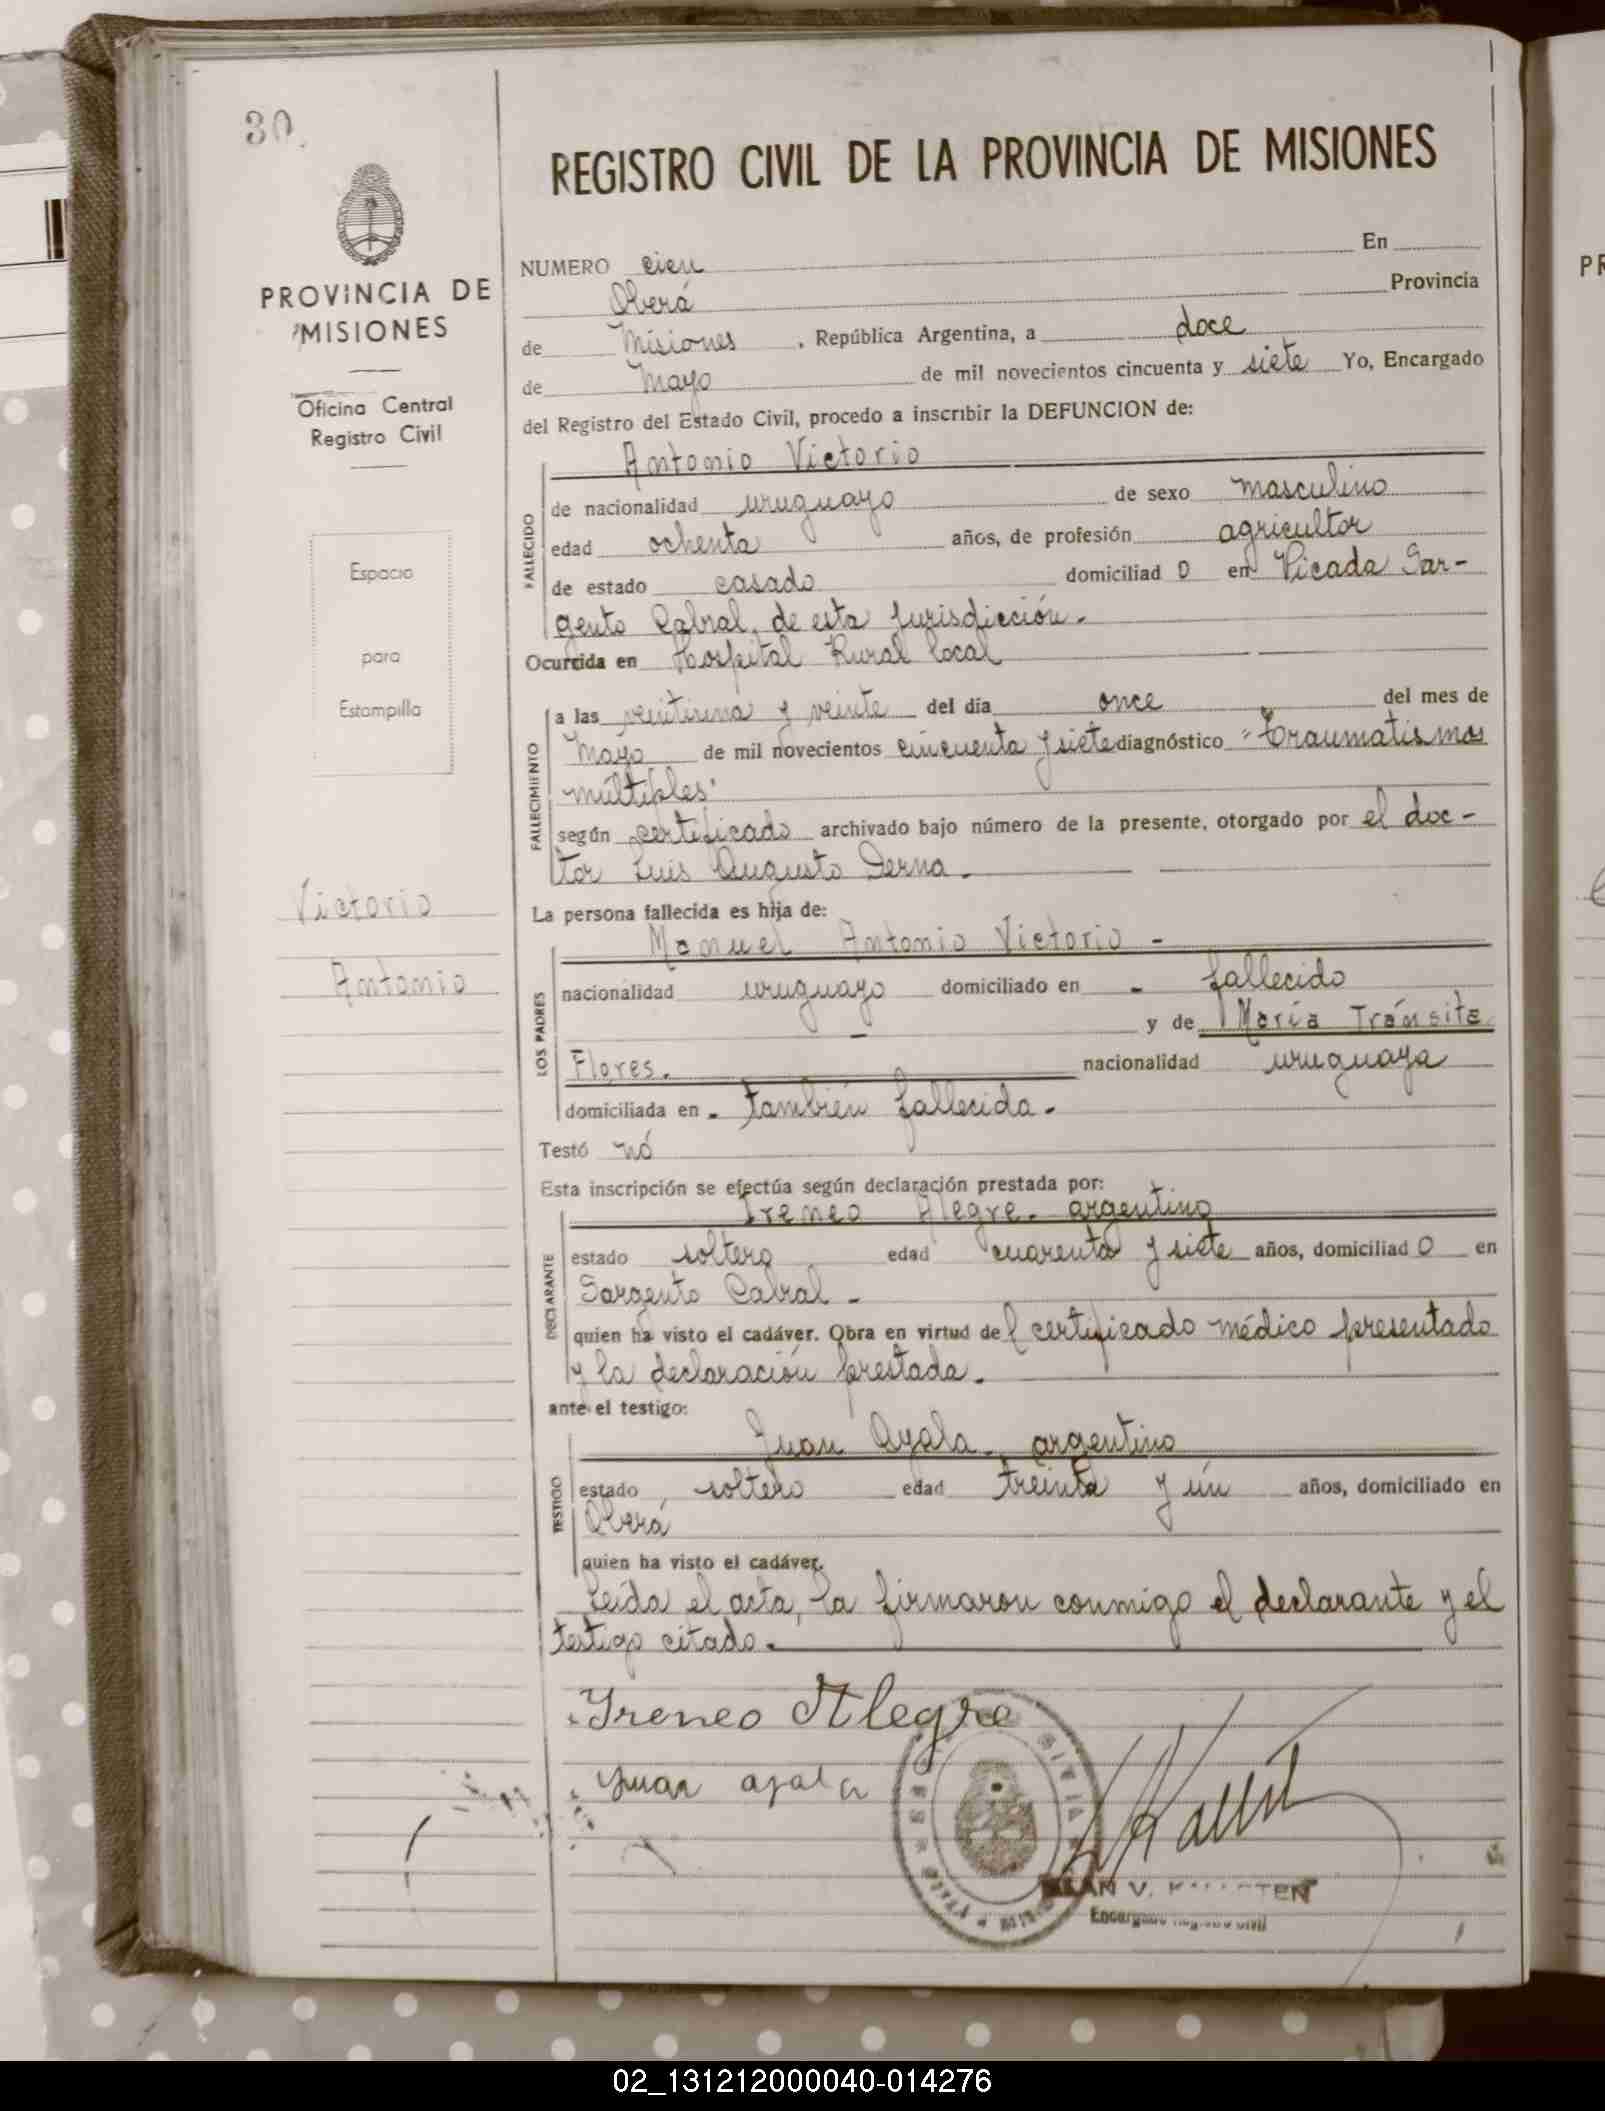 30.
REGISTRO CIVIL DE LA PROVINCIA DE MISIONES
PROVINCIA DE
MISIONES
Oficina Central
Registro Civil
Espacio
para
Estampilla
Victorio
Antonio
NUMERO cien En
Oberá Provincia
de Misiones, República Argentina, a doce
de Mayo de mil novecientos cincuenta y siete Yo, Encargado
del Registro del Estado Civil, procedo a inscribir la DEFUNCION de:
Antonio Victorio
FALLECIDO
de nacionalidad uruguayo de sexo masculino
edad ochenta años, de profesión agricultor
de estado casado domiciliad o en Picada Sar-
gento Cabral, de esta jurisdicción.
Ocurrida en Hospital Rural local
FALLECIMIENTO
a las veintiuna y veinte del día once del mes de
Mayo de mil novecientos cincuenta y siete diagnóstico "Traumatismos
múltiples"
según certificado archivado bajo número de la presente, otorgado por el doc-
tor Luis Augusto Derna.
La persona fallecida es hija de:
Manuel Antonio Victorio -
LOS PADRES
nacionalidad uruguayo domiciliado en - fallecido
- y de María Tránsita
Flores. nacionalidad uruguaya
domiciliada en - también fallecida.
Testó nó
Esta inscripción se efectúa según declaración prestada por:
Ireneo Alegre. argentino
DECLARANTE
estado soltero edad cuarenta y siete años, domiciliad o en
Sargento Cabral -
quien ha visto el cadáver. Obra en virtud del certificado médico presentado
y la declaración prestada.
ante el testigo:
Juan Ayala. argentino
TESTIGO
estado soltero edad treinta y ún años, domiciliado en
Oberá
quien ha visto el cadáver.
Leída el acta, la firmaron conmigo el declarante y el
testigo citado.
Yreneo Alegre
Juan ayala
02_131212000040-014276